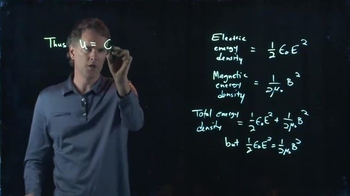 Thus u = C
Electric
energy
density = 1/2 ε₀E²
Magnetic
energy
density = 1/2μ₀ B²
Total energy
density = 1/2 ε₀E² + 1/2μ₀ B²
but 1/2 ε₀E² = 1/2μ₀ B²